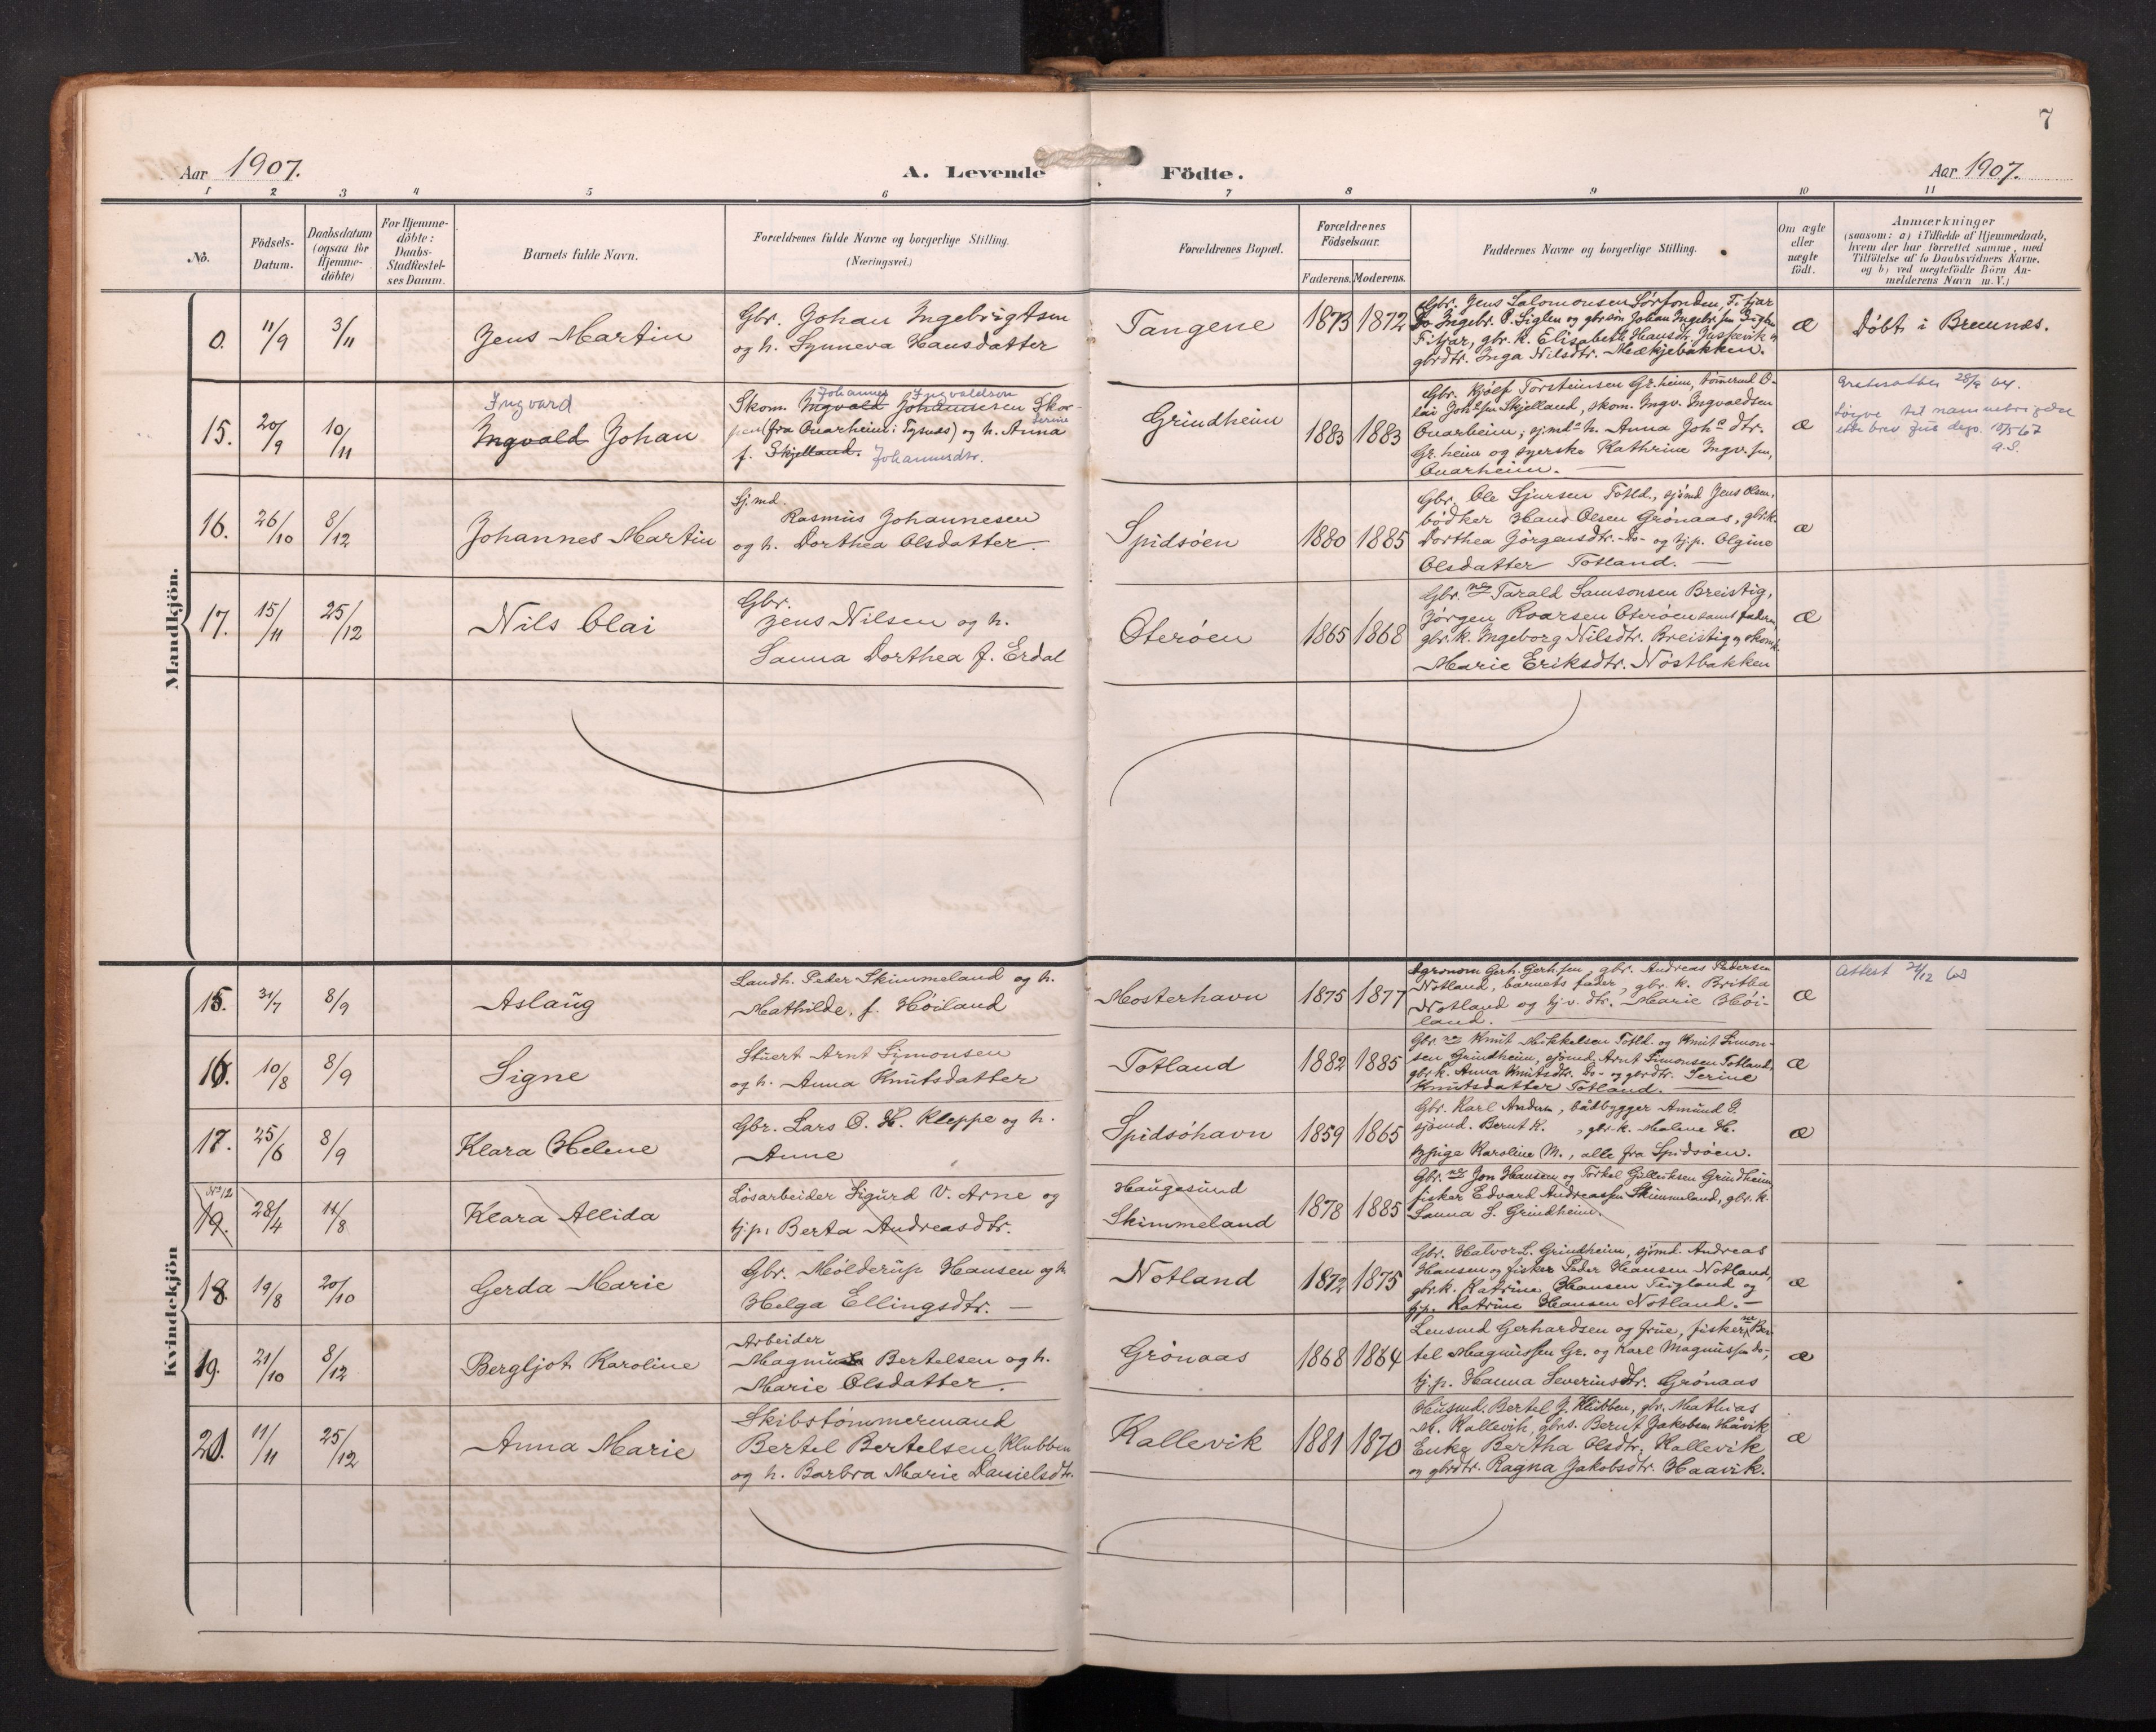 7
Aar 1907.
A. Levende Födte.
Aar 1907.
1 2 3 4 5 6 7 8 9 10 11
No.
Födsels-Datum.
Daabsdatum (ogsaa for Hjemme-döbte)
For Hjemme-döbte: Daabs-Stadfæstel-ses Datum.
Barnets fulde Navn.
Forældrenes fulde Navne og borgerlige Stilling.
(Næringsvei.)
Forældrenes Bopæl.
Forældrenes Födselsaar.
Faderens. Moderens.
Faddernes Navne og borgerlige Stilling.
Om ægte eller uægte födt.
Anmærkninger
(saasom: a) i Tilfælde af Hjemmedaab,
hvem der har forrettet samme, med
Tilföielse af to Daabsvidners Navne,
og b) ved uægtefödte Börn An-
melderens Navn m. V.)
Mandkjön.
0. 11/9 3/11 Jens Martin
Gbr. Johan Ingebrigtsen
og h. Synneva Hansdatter
Tangene 1873 1872
Gbr. Jens Salomonsen Sørfonden, Fitjar
Do Ingebr. O. Siglen og gbrsøn Johan Ingebr.sen Siglen
Fitjar, gbr. k. Elisabeth Hansdtr.
gbrdtr. Inga Nilsdtr. Mækjebakken.
æ Döbt i Bremnæs.
15. 20/9 10/11 Ingvard
Ingvald Johan
Johannes Ingvaldson
Skom. Ingvald Johannesen Skor-
pen (fra Onarheim i Tysnæs) og h. Anna Serine
f. Skjelland. Johannesdtr.
Grindheim 1883 1883
Gbr. Kjölf Torsteinsen Gr.heim, tömmermd O-
lai Joh.sen Skjelland, skom. Ingv. Ingvaldsen
Onarheim, sjmds h. Anna Joh.s dtr.
Gr.heim og syerske Kathrine Ingv.sen,
Onarheim. —
æ 28/9 64.
Løyve til namnebrigde
etter brev Jus. dep. 10/5-67
A.S.
16. 26/10 8/12 Johannes Martin
Sjmd.
Rasmus Johannesen
og h. Dorthea Olsdatter.
Spidsöen 1880 1885
Gbr. Ole Sjursen Totld., sjömd Jens Olsen,
bödker Hans Olsen Grönaas, gbr.k.
Dorthea Jörgensdtr. Do- og tj.p. Olgine
Olsdatter Totland. —
æ
17. 15/11 25/12 Nils Olai
Gbr.
Jens Nilsen og h.
Sanna Dorthea f. Erdal
Oteröen 1865 1868
Gbr.ne Tarald Samsonsen Breistig,
Jörgen Roarsen Oteröen samt faderen,
gbr.k. Ingeborg Nilsdtr. Breistig og
Marie Eriksdtr. Nöstbakken
æ
Kvindekjön
15. 31/7 8/9 Aslaug
Landh. Peder Skimmeland og h.
Mathilde, f. Höiland
Mosterhavn 1875 1877
Agronom Gerh. Gerh.sen, gbr. Andreas Pedersen
Notland, barnets fader, gbr. k. Britha
Notland og tj.v. dtr. Marie Höi-
land.
æ Attest 21/12 60
16. 10/8 8/9 Signe
Stuert Arnt Simonsen
og h. Anna Knutsdatter
Totland 1882 1885
Gbr.ne Knut Mikkelsen Totld. og Knut Simon-
sen Grindheim, sjömd. Arnt Simonsen Totland,
gbr.k. Anna Knutsdtr. Do- og gbrdtr. Serine
Knutsdatter Totland. —
æ
17. 25/6 8/9 Klara Helene
Gbr. Lars O. H. Kleppe og h.
Anne
Spidsöhavn 1859 1865
Gbr. Karl Andersen, bådbygger Amund J.
sjömd. Bernt K. , gbr.k. Malene H.
og pige Karoline M., alle fra Spidsöen.
æ
No 12
19. 28/4 11/8 Klara Allida
Lösarbeider Sigurd V. Arne og
tj.p. Berta Andreasdtr.
Haugesund
Skimmeland 1878 1885
Gbr.ne Jon Hansen og Torkel Gulleiksen Grindheim,
fisker Edvard Andreassen Skimmeland, gbr. k.
Sanna S. Grindheim.
18. 19/8 20/10 Gerda Marie
Gbr. Mölderup Hansen og h
Helga Ellingsdtr. —
Notland 1872 1875
Gbr. Halvor L. Grindheim, sjömd. Andreas
Hansen og fisker Peder Hansen Notland,
gbr.k. Katrine Hansen Teigland og
tj.p. Katrine Hansen Notland. —
æ
19. 21/10 8/12 Bergljot Karoline
Arbeider
Magnus Bertelsen og h.
Marie Olsdatter.
Grönaas 1868 1864
Lensmd Gerhardsen og frue, fiskerne Ber-
tel Magnussen Gr. og Karl Magnussen do-,
tj.p. Hanna Severinsdtr. Grönaas
æ
20. 11/11 25/12 Anna Marie
Skibstömmermand
Bertel Bertelsen Klubben
og h. Barbra Marie Danielsdtr.
Kallevik 1881 1870
Husmd. Bertel J. Klubben, gbr. Mathias
M. Kallevik, gbrs. Bernt Jakobsen Håvik
Enke Bertha Olsdtr. Kallevik
og gbrdtr. Ragna Jakobsdtr. Haavik.
æ